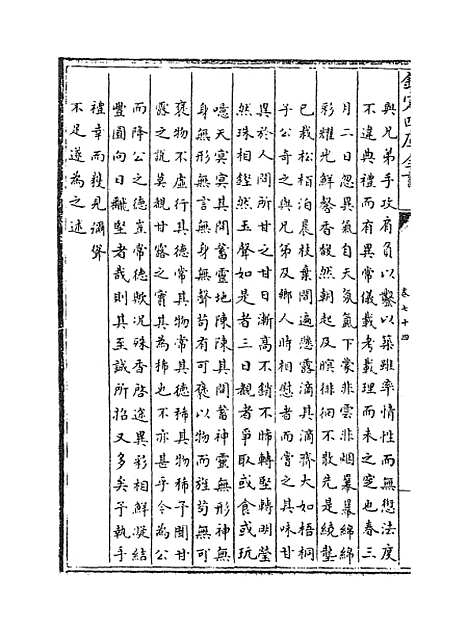 欽定四庫全書
卷七十四
與兄弟手攻肩負以鑿以築雖率情性而無愆法度
不違典禮而有異常儀載考載理而未之定也春三
月二日忽異氣自天氛氳下蒙非雲非烟羃羃綿綿
彩耀光鮮馨香馥然朝起及暝徘徊不散先是繞塋
已栽松栢泊晨枝葉間遍懸露滴其滴齊大如梧桐
子公奇之與兄弟及鄉人時相慰者而嘗之其味甘
異於人間所甘之甘日漸高不銷不晞轉堅轉明瑩
然珠相鏗然玉聲如是者三日觀者爭取或食或玩
噫天冥冥其間蓄靈地陳陳其間蓄神靈無形神無
身無形無言無身無聲苟有可褒以物而強苟無可
褒物不虛行其德常其物常其德稀其物稀予聞甘
露之說莫覩甘露之實其為稀也不亦甚乎今為公
而降公之德豈常德歟況殊香啓途異彩相鮮凝結
豐圓向日難堅者哉則其至誠所招又多矣予執手
禮幸而親見濡筆
不足遂為之述